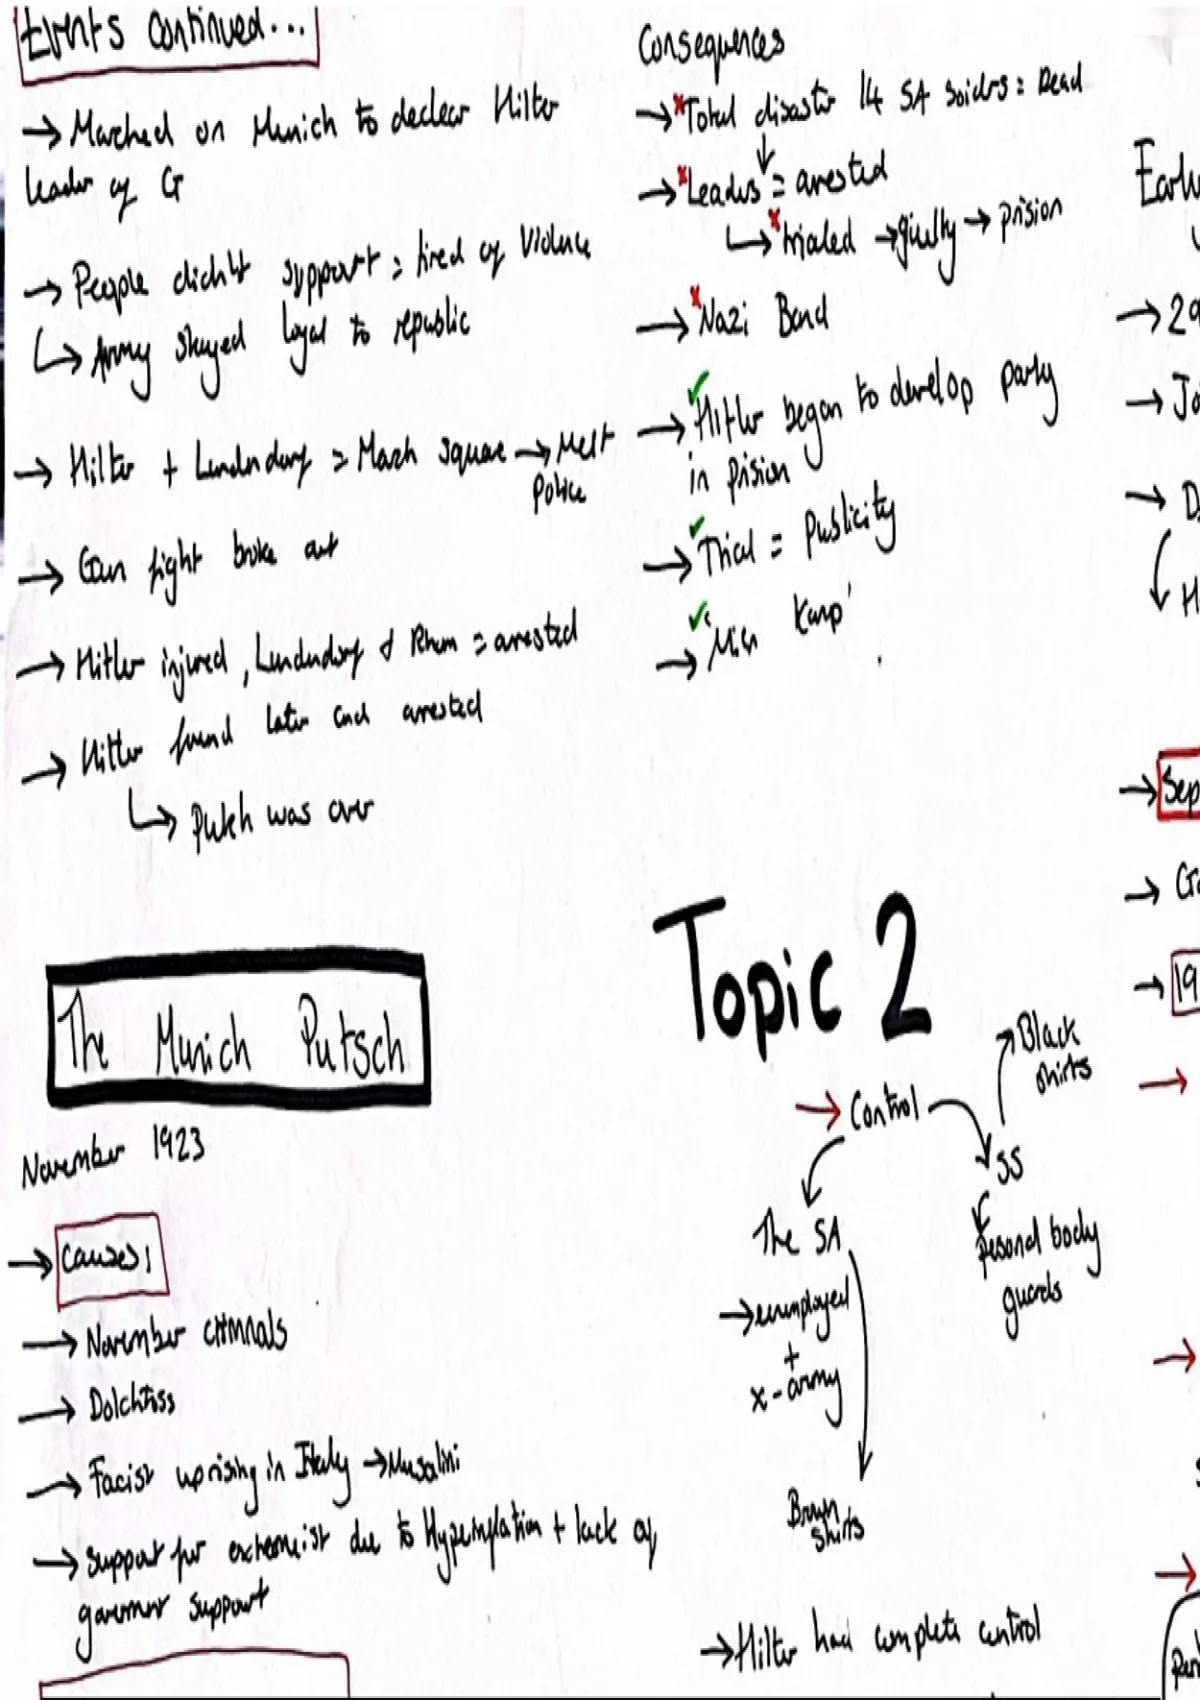 Events continued...
→ Marched on Munich to declear Hilter
leader of G
→ People didn't support = tired of Violence
↳ Army stayed loyal to republic
→ Hilter + Lundendorf = March square → Met
Police
→ Gun fight broke out
→ Hitler injured, Lundendorf + Rhom = arrested
→ Hitler found later and arrested
↳ Putch was over
The Munich Putsch
November 1923
→ Causes:
→ November criminals
→ Dolchtoss
→ Facist uprising in Italy → Musalini
→ Support for extremist due to Hyperinflation + lack of
support
Consequences
→ Total disaster 14 SA = Dead
→ Leaders = arrested
↳ trialed → guilty → prision
→ Nazi Band
→ Hitler began to develop party
in prision
→ Trial = Publicity
→ 'Mien Kamp'
Topic 2
→ Control
Black
shirts
SS
Personal body
guards
The SA
→
+
x-army
Brown
shirts
→ Hilter had complete control
→ 29
→ Jo
→ D
H
→ Sep
→ 19